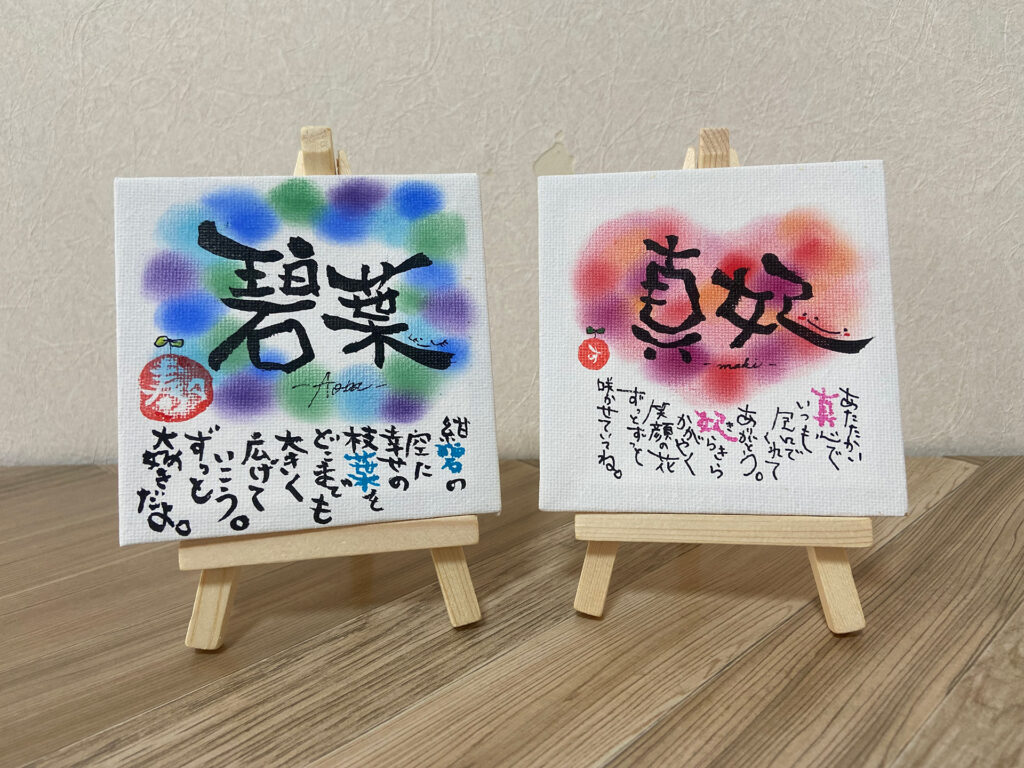 碧葉
-Aoba-
寿
紺碧の
空に
幸せの
枝葉を
どこまでも
大きく
広げて
いこう。
ずっと
大好きだよ。
真妃
-maki-
あたたかい
真心で
いつも
包んでくれて
ありがとう。
きらきら
かがやく
笑顔の花
ずっとずっと
咲かせていてね。